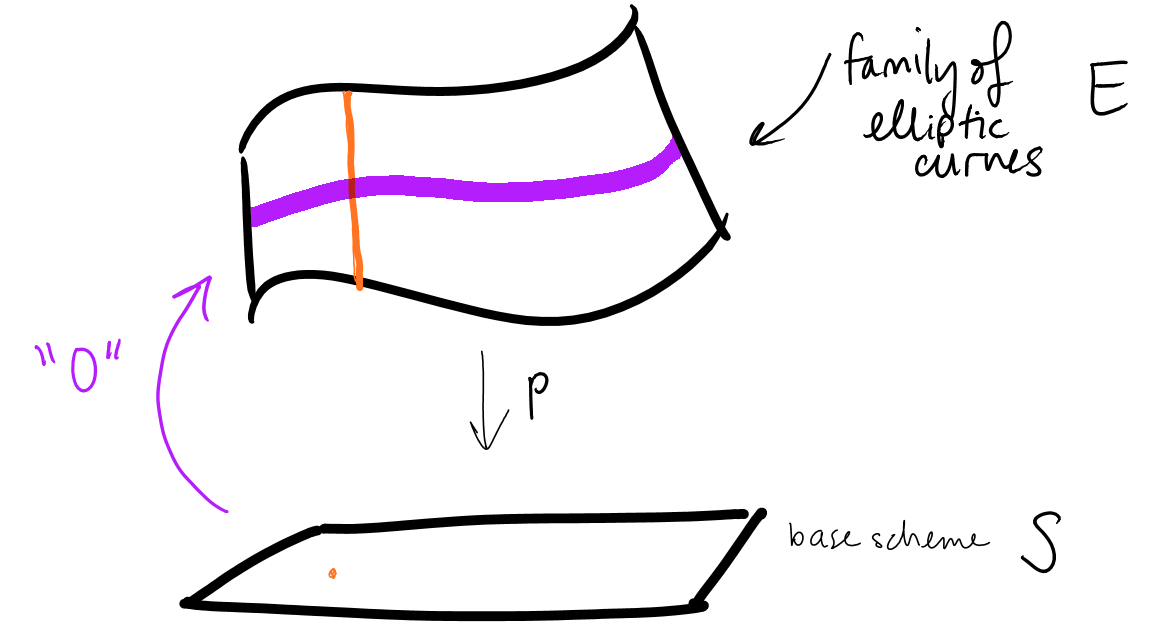 family of
elliptic
curves
E
"0"
p
base scheme S